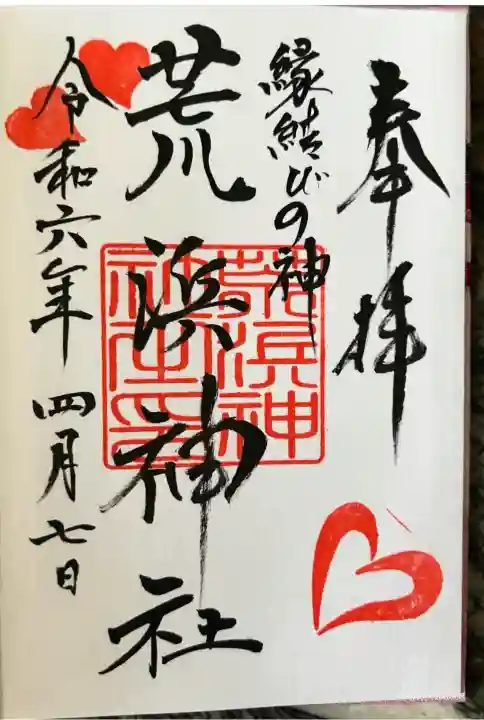 奉拝
縁結びの神
荒浜神社
荒浜神社之印
令和六年四月七日